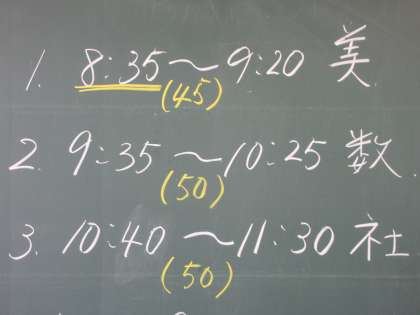 1. 8:35～9:20 美
(45)
2. 9:35～10:25 数
(50)
3. 10:40～11:30 社
(50)